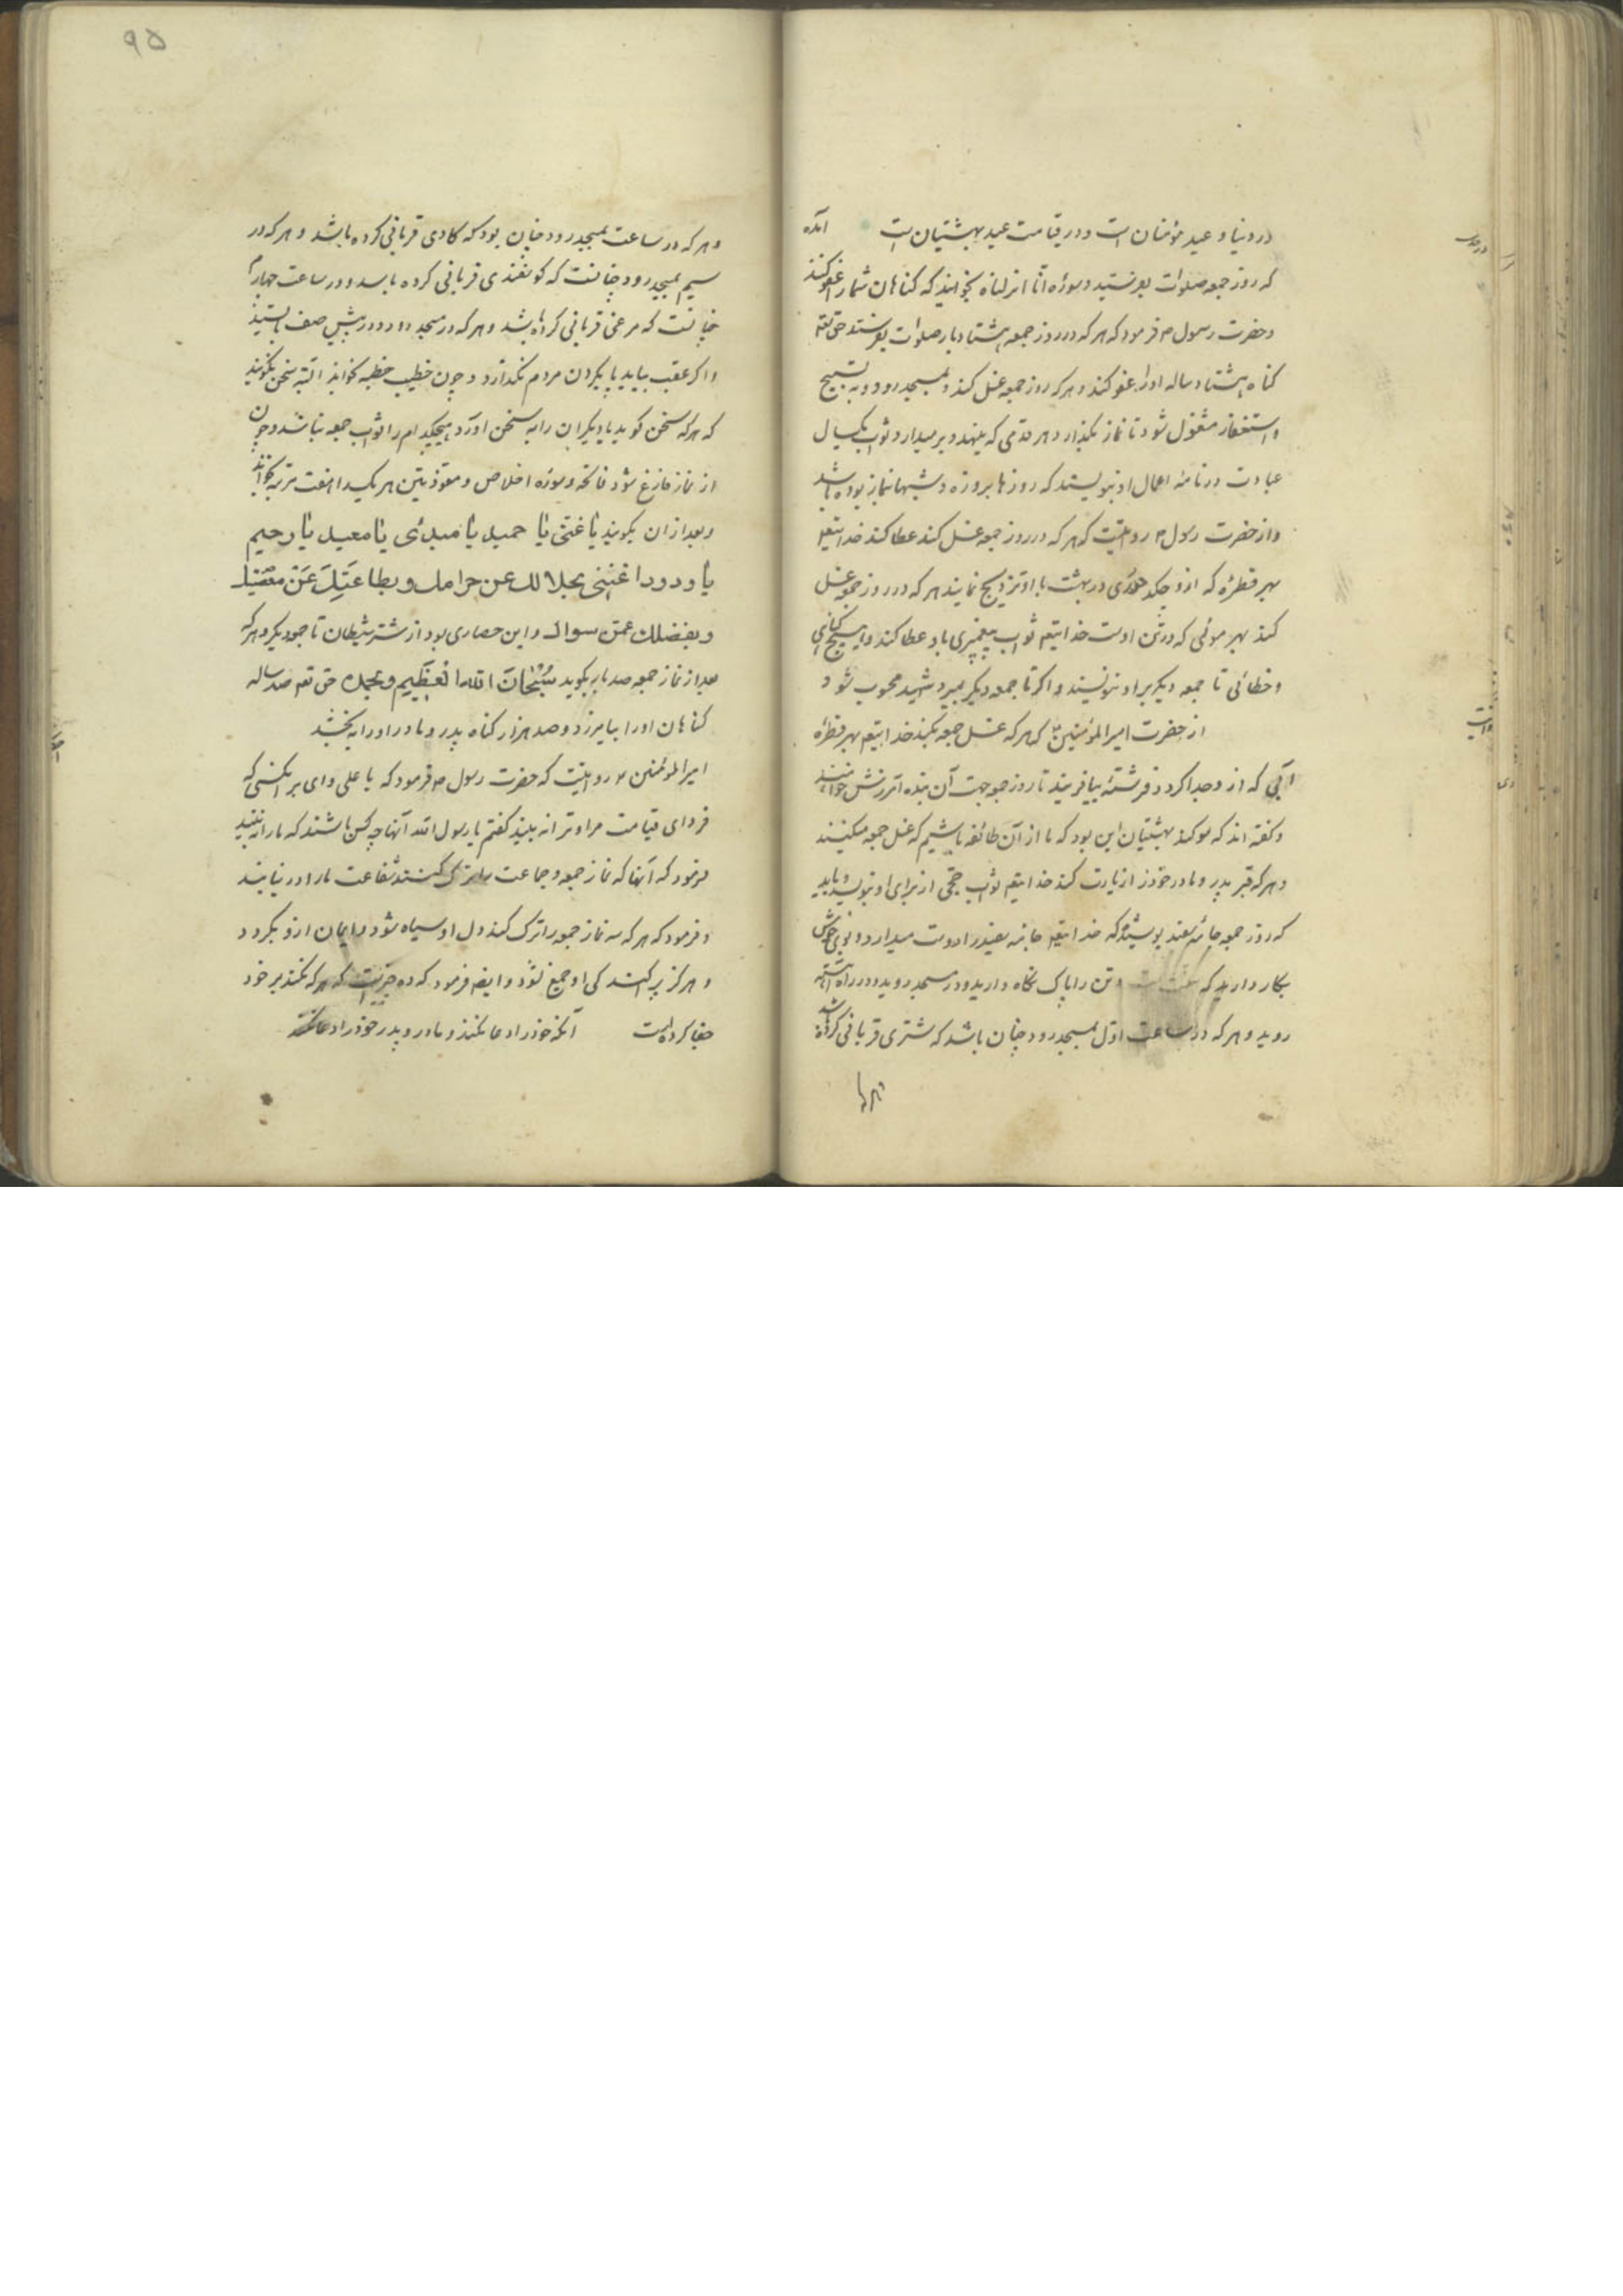 در دنیا و عید مؤمنان است و در قیامت عید بهشتیان است آمده
که روز جمعه صلوات بفرستید و سوره انا انزلناه بخوانید که کناهان شما را عفو کنند
و حضرت رسول ص فرمود که هر که در روز جمعه هشتاد بار صلوات بفرستد حق تعه
کناه هشتاد ساله او را عفو کند و هر که روز جمعه غسل کند و بمسجد رود و به تسبیح
و استغفار مشغول شود تا نماز بکذارد هر قدمی که بنهد و بر میدارد ثواب یکسال
عبادت در نامه اعمال او بنویسند که روزها بروزه و شبها بنماز بوده باشد
و از حضرت رسول ص روایتست که هر که در روز جمعه غسل کند عطا کند خدایتعه
بهر قطرۀ که ازو چکد حوری در بهشت با او تزویج نمایند هر که در روز جمعه غسل
کند بهر موئی که در تن اوست خدایتعه ثواب پیغمبری باو عطا کند و هیچ کناهی
و خطائی تا جمعه دیکر بر او ننویسند و اکر تا جمعه دیکر بمیرد شهید محسوب شود
از حضرت امیرالمؤمنین ع که هر که غسل جمعه بکند خدایتعه بهر قطرۀ
آبی که از و جدا کردد فرشتۀ بیافریند تا روز جمعه جهت آن بنده آمرزش خواهند
و کفته اند که سوکند بهشتیان این بود که ما از آن طائفه باشیم که غسل جمعه میکنند
و هر که قبر پدر و مادر خود را زیارت کند خدایتعه ثواب حجی از برای او بنویسد و باید
که روز جمعه جامۀ سفید بپوشید که خدایتعه جامه سفید را دوست میدارد و بوی خوش
بکار دارید که سنت است و تن را پاک نکاه دارید و در مسجد روید و در راه آهسته
روید و هر که در ساعت اول بمسجد رود چنان باشد که شتری قربانی کرده باشد
و هر که
۹۵
و هر که در ساعت بمسجد رود چنان بود که کاوی قربانی کرده باشد و هر که در
سیم بمسجد رود چنانست که کوسفندی قربانی کرده باشد و در ساعت چهارم
چنانست که مرغی قربانی کرده باشد و هر که در مسجد رود در پیش صف بایستید
و اکر عقب بیاید پا بکردن مردم نکذارد و چون خطیب خطبه خواند البته سخن نکویند
که هر که سخن کوید یا دیکران را به سخن آورد هیچکدام را ثواب جمعه نباشد و چون
از نماز فارغ شود فاتحه و سوره اخلاص و معوذتین هر یک را هفت مرتبه بخواند
و بعد از آن بکویند یا غنی یا حمید یا مبدئ یا معید یا رحیم
یا ودود اغننی بحلالك عن حرامك و بطاعتك عن معصیتك
و بفضلك عمن سواك و این حصاری بود از شر شیطان تا جمعه دیکر و هر که
بعد از نماز جمعه صد بار بکوید سبحان الله العظیم و بحمده حق تعه صد ساله
کناهان او را بیامرزد و صد هزار کناه پدر و مادر او را ببخشد
امیرالمؤمنین ع روایتست که حضرت رسول ص فرمود که یا علی وای بر آنکسی که
فردای قیامت مرا و ترا نه بیند کفتم یا رسول الله آنها چه کس باشند که ما را نه بینند
فرمود که آنها که نماز جمعه و جماعت را ترک کنند شفاعت ما را در نیابند
و فرمود که هر که سه نماز جمعه را ترک کند دل او سیاه شود و ایمان ازو بکردد
و هرکز پراکندکی او جمع نشود و ایضه فرمود که ده چیزست که هر که نکند بر خود
جفا کرده است آنکه خود را دعا نکند و مادر و پدر خود را دعا نکند